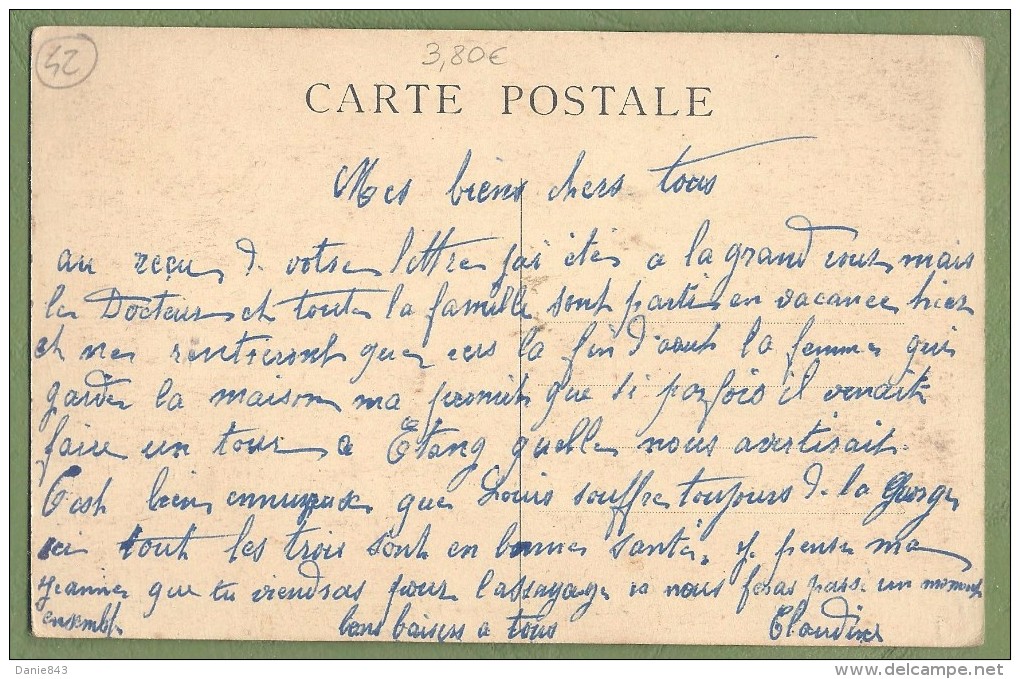 42
3,80€
CARTE POSTALE
Mes biens chers tous
au reçu de votre lettre j'ai étés a la grand cour mais
le Docteur et toute la famille sont parti en vacance hier
et ne rentreront que vers la fin d'aout la femme qui
garde la maison ma promit que si parfois il venait
faire un tour a Etang quelle nous avertirait
C'est bien ennuyeux que Louis souffre toujours de la gorge
ici tout les trois sont en bonne santé, je pense ma
Jeanne que tu viendras pour l'assayage sa nous feras passé un moment
ensemble bons baisers a tous Claudine
Danie843 delcampe.net